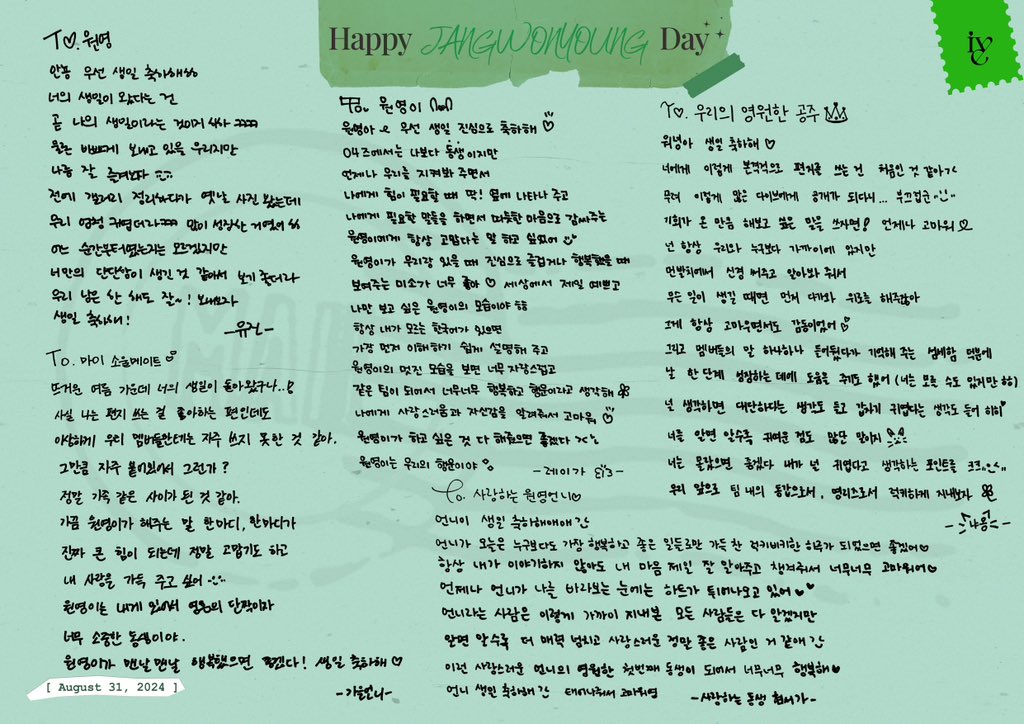 Happy JANGWONYOUNG Day
ive
To. 원영
안뇽 우선 생일 축하해
너의 생일이 왔다는 건
곧 나의 생일이라는 것이기
나름 잘 즐겨보자
우리 엄청 귀엽더라
어느 순간부터였는지는 모르겠지만
너만의 단단함이 생긴 것 같아서 보기 좋더라
우리 남은 한 해도 잘~! 보내보자
생일 축하해!
-유진-
To. 마이 소울메이트
뜨거운 여름 가운데 너의 생일이 돌아왔구나..!
사실 나는 편지 쓰는 걸 좋아하는 편인데도
이상하게 우리 멤버들한테는 자주 쓰지 못한 것 같아.
그만큼 자주 붙어있어서 그런가?
정말 가족 같은 사이가 된 것 같아.
가끔 원영이가 해주는 말 한마디, 한마디가
진짜 큰 힘이 되는데 정말 고맙기도 하고
내 사랑을 가득 주고 싶어
원영이는 내게 있어서 영혼의 단짝이자
너무 소중한 동생이야.
원영이가 맨날맨날 행복했으면 좋겠다! 생일 축하해♡
-가을언니-
[ August 31, 2024 ]
To. 원영이
원영아 우선 생일 진심으로 축하해♡
04즈에서는 나보다 동생이지만
언제나 우리를 지켜봐 주면서
나에게 힘이 필요할 때 딱! 옆에 나타나 주고
나에게 필요한 말들을 하면서 따뜻한 마음으로 감싸주는
원영이에게 항상 고맙다는 말 하고 싶었어
원영이가 우리랑 있을 때 진심으로 즐겁거나 행복했을 때
보여주는 미소가 너무 좋아♡ 세상에서 제일 예쁘고
나만 보고 싶은 원영이의 모습이야 ㅎㅎ
항상 내가 모르는 한국어가 있으면
가장 먼저 이해하기 쉽게 설명해 주고
원영이의 멋진 모습을 보면 너무 자랑스럽고
같은 팀이 되어서 너무너무 행복하고 행운이라고 생각해
나에게 사랑스러움과 자신감을 알려줘서 고마워♡
원영이가 하고 싶은 것 다 해줬으면 좋겠다
원영이는 우리의 행운이야
-레이가-
To. 사랑하는 원영언니♡
언니이 생일 축하해애애
언니가 오늘은 누구보다도 가장 행복하고 좋은 일들로만 가득 찬 럭키비키한 하루가 되었으면 좋겠어♡
항상 내가 이야기하지 않아도 내 마음 제일 잘 알아주고 챙겨줘서 너무너무 고마워어♡
언제나 언니가 나를 바라보는 눈에는 하트가 튀어나오고 있어♥
언니라는 사람은 이렇게 가까이 지내본 모든 사람들은 다 알겠지만
알면 알수록 더 매력 넘치고 사랑스러운 정말 좋은 사람인 거 같애
이런 사랑스러운 언니의 영원한 첫번째 동생이 되어서 너무너무 행복해♥
언니 생일 축하해 태어나줘서 고마워영
-사랑하는 동생 현서가-
To. 우리의 영원한 공주
워녕아 생일 축하해♡
너에게 이렇게 본격적으로 편지를 쓰는 건 처음인 것 같아
무려 이렇게 많은 다이브에게 공개가 되다니... 부끄럽군
기회가 온 만큼 해보고 싶은 말을 쓰자면! 언제나 고마워
넌 항상 우리와 누구보다 가까이에 있지만
먼발치에서 신경 써주고 알아봐 줘서
무슨 일이 생길 때면 먼저 다가와 위로를 해주잖아
그게 항상 고마우면서도 감동이었어
그리고 멤버들의 말 하나하나 들어뒀다가 기억해 주는 섬세함 덕분에
날 한 단계 성장하는 데에 도움을 주기도 했어 (너는 모를 수도 있지만 ㅎㅎ)
널 생각하면 대단하다는 생각도 들고 갑자기 귀엽다는 생각도 들어 히히
너를 알면 알수록 귀여운 점도 많단 말이지
너는 몰랐으면 좋겠다 내가 널 귀엽다고 생각하는 포인트들 ㅋㅋ
우리 앞으로 팀 내의 동갑으로서, 영리즈로서 럭키하게 지내보자